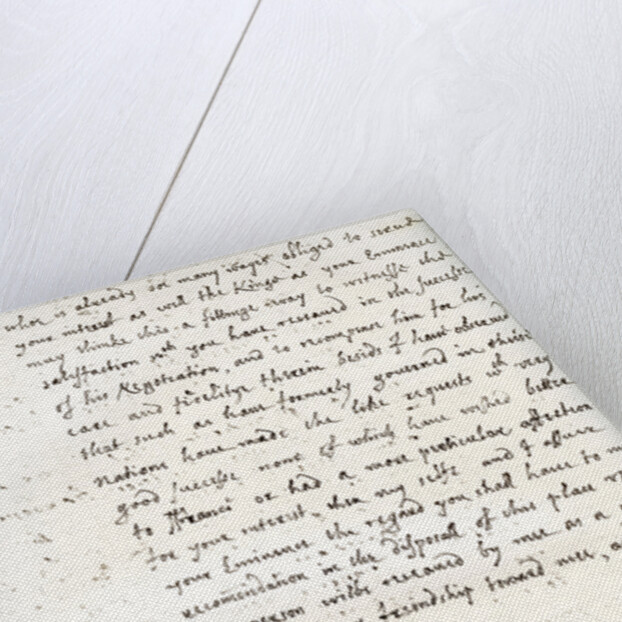 who is already soe many wayes obliged to serve
your interest as well the Kings as your Eminence
may thinke this a strange way to witnesse the
satisfaction you have receaved in the successe
of his Negotiation, and to recompense him for his
care and fidelitye therein besids I have observed
that such as have formerly governed in these
Nations have made the like requests with very
good successe none of which have wished better
to France or had a more particular affection
for your interest then my selfe and I assure
your Eminence the regard you shall have to my
recomendation in the disposall of this place
person wilbe receaved by mee as a
friendship toward mee,